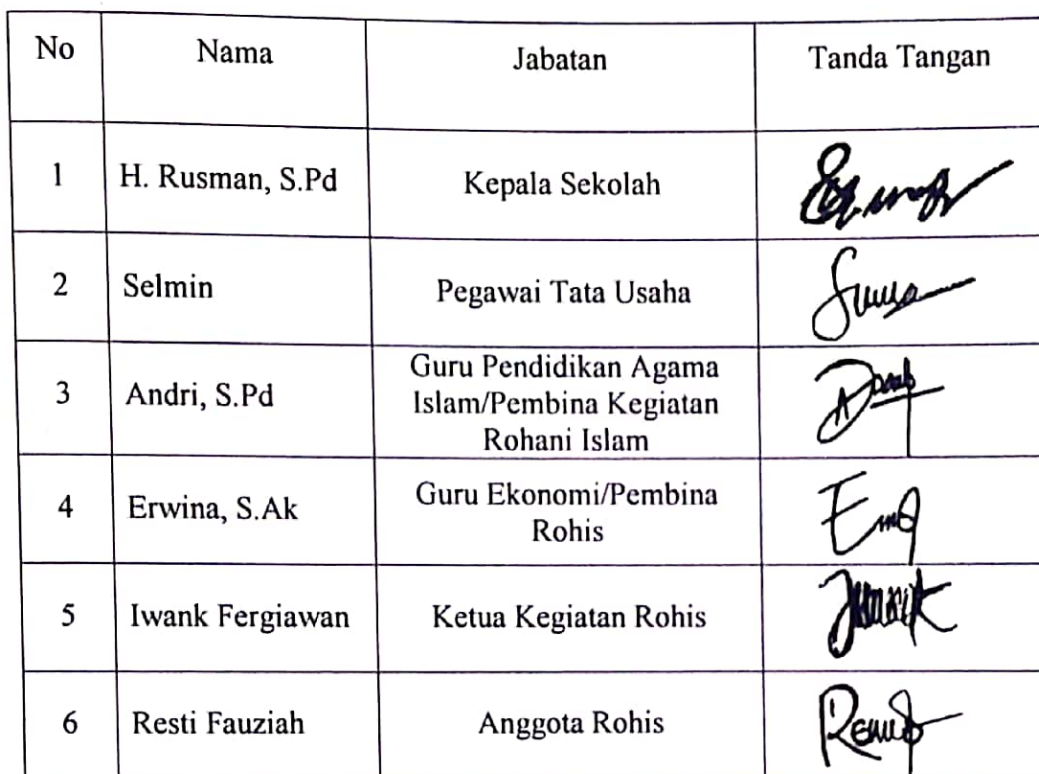 No Nama Jabatan Tanda Tangan
1 H. Rusman, S.Pd Kepala Sekolah
2 Selmin Pegawai Tata Usaha
3 Andri, S.Pd Guru Pendidikan Agama
Islam/Pembina Kegiatan
Rohani Islam
4 Erwina, S.Ak Guru Ekonomi/Pembina
Rohis
5 Iwank Fergiawan Ketua Kegiatan Rohis
6 Resti Fauziah Anggota Rohis